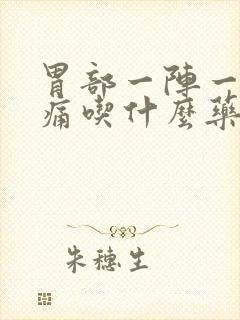 胃部一陣一
痛喫什麼藥
朱穗生